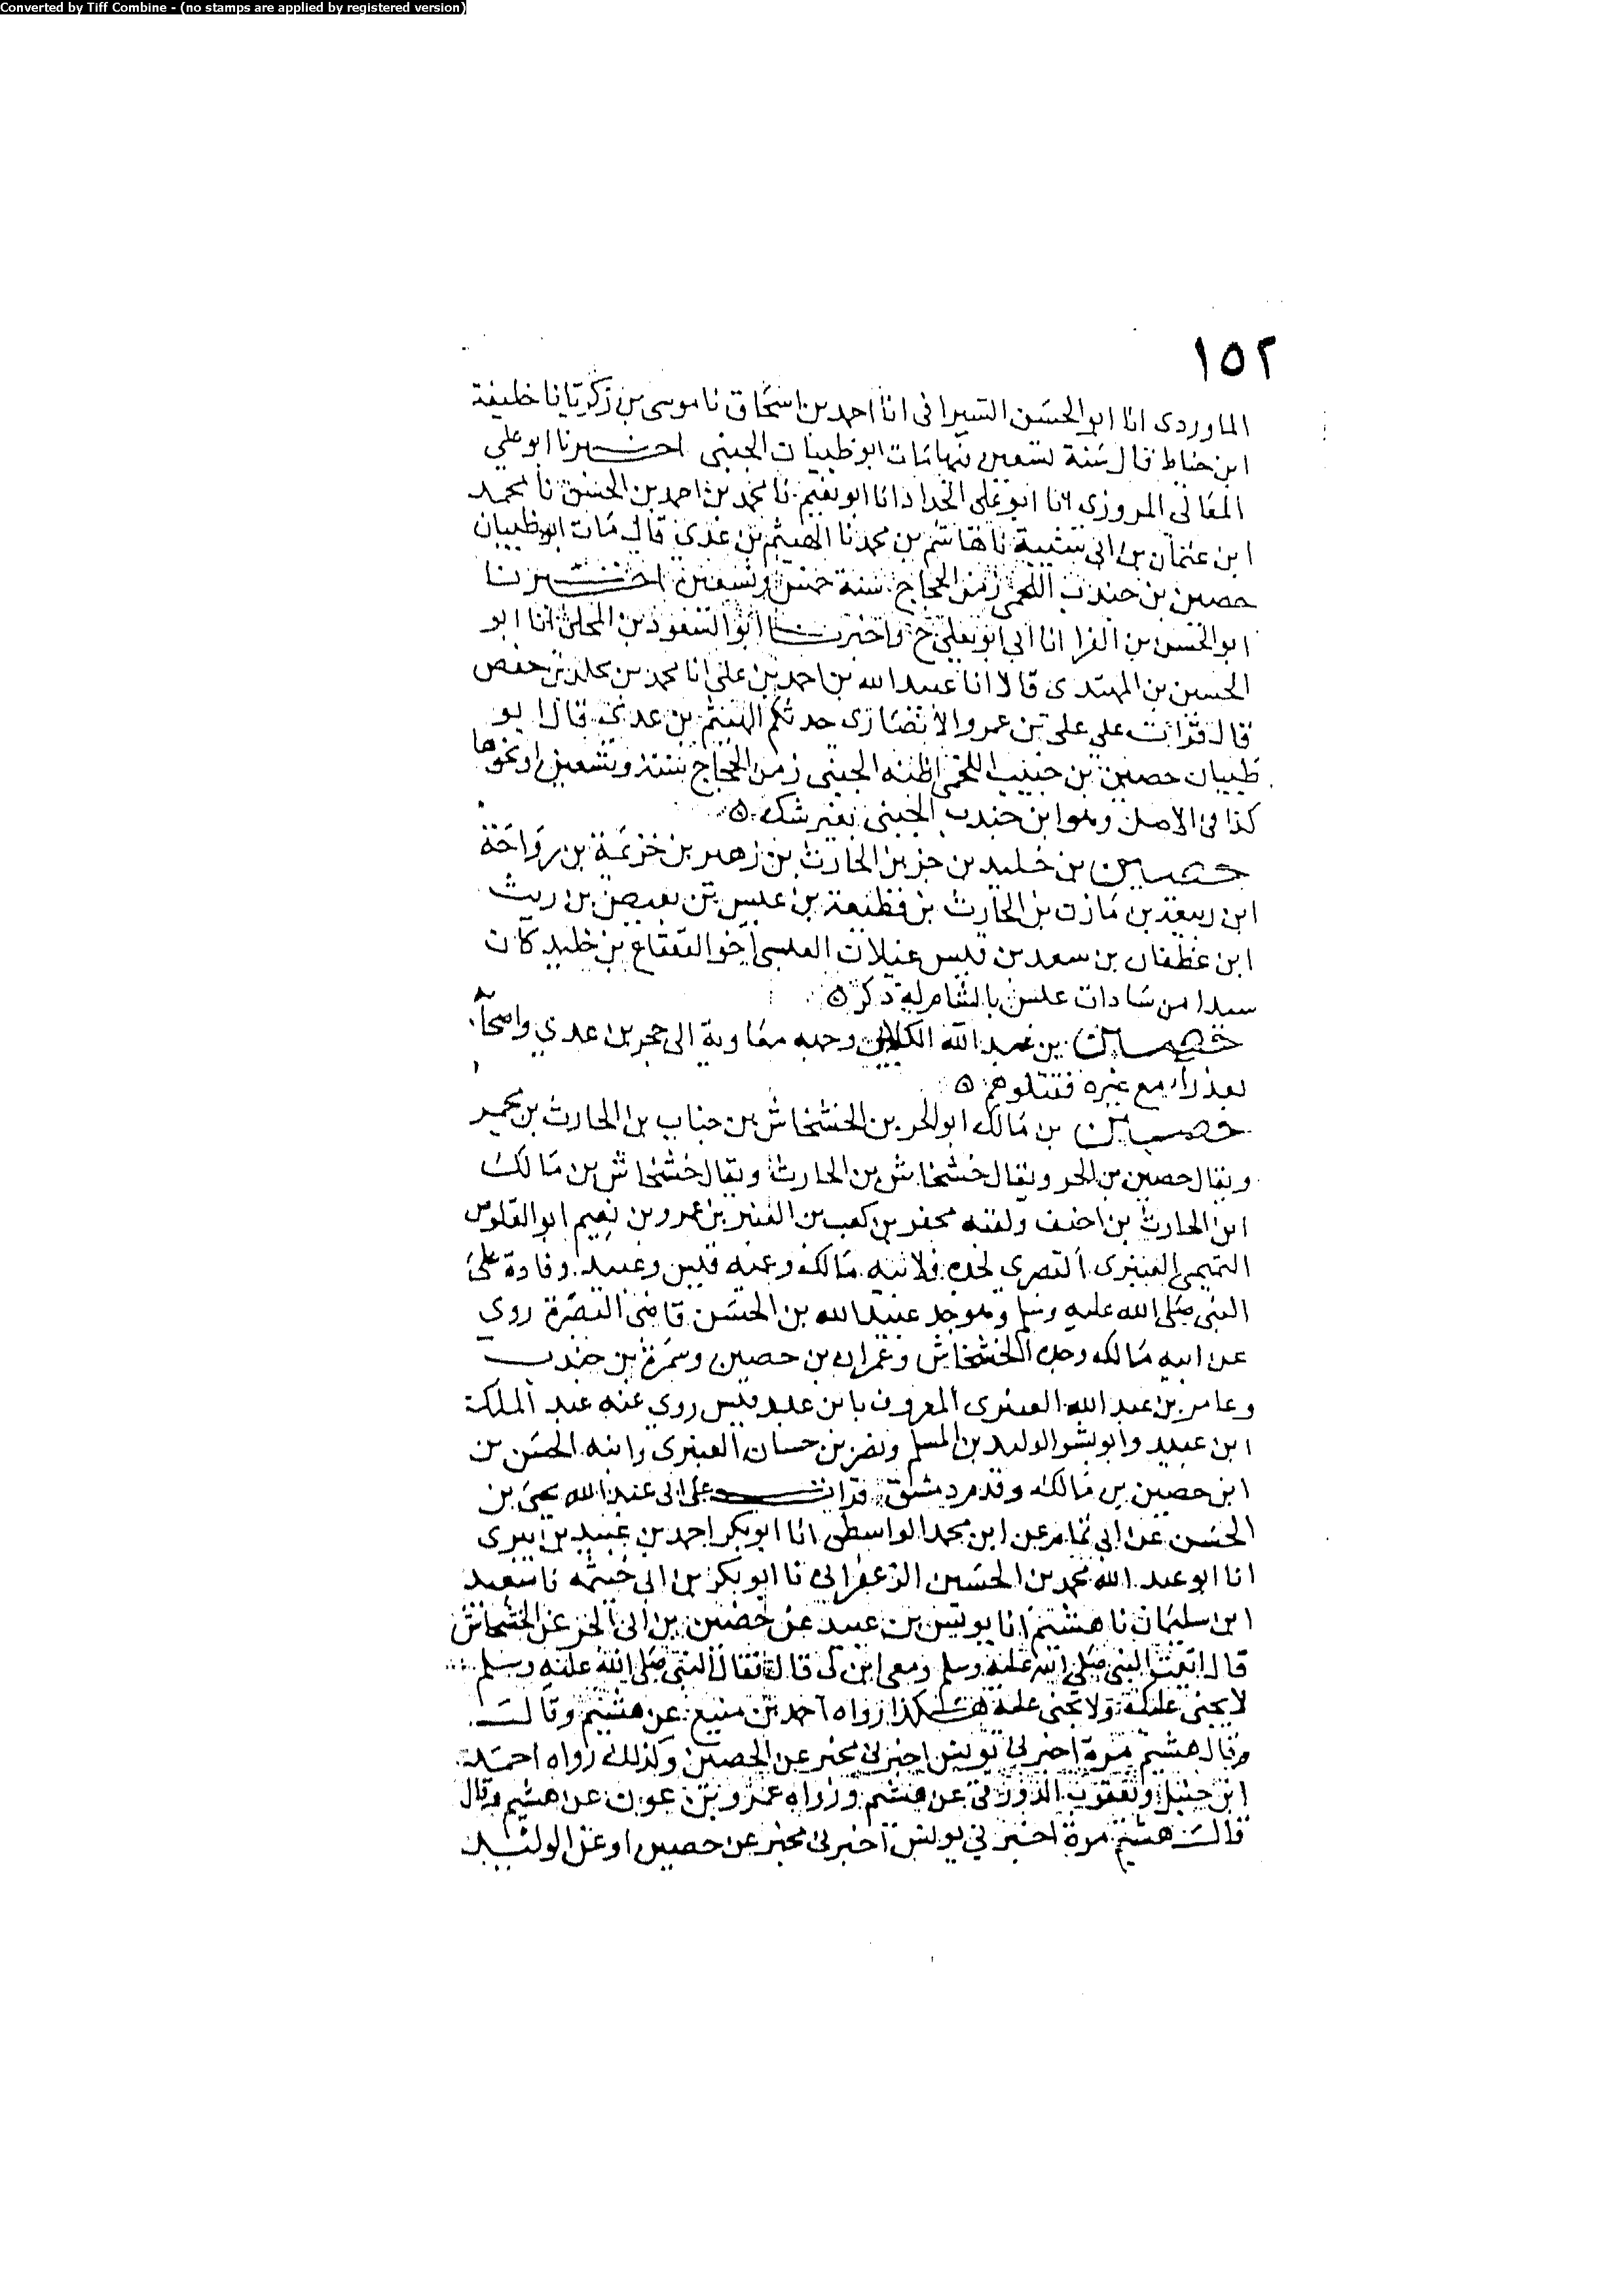 Converted by Tiff Combine - (no stamps are applied by registered version)
١٥٢
الماوردى انا ابو الحسن السيرافى انا احمد بن اسحاق نا موسى بن زكريا نا خليفة
ابن خياط قال سنة تسعين فيها مات ابو ظبيان الجنبى اخبرنا ابو علي
المروزى انا ابو على الحداد انا ابو نعيم نا محمد بن احمد بن الحسن نا محمد
ابن عثمان بن ابى شيبة نا هاشم بن محمد نا الهيثم بن عدى قال مات ابو ظبيان
حصين بن جندب اللخمى زمن الحجاج سنة خمس وتسعين اخبرنا
ابو الحسين بن الفرا انا ابي ابو يعلى ح واخبرنا ابو السعود بن المجلى انا ابو
الحسين بن المهتدى قالا انا عبيد الله بن احمد بن على انا محمد بن مخلد بن حفص
قال قرات على على بن عمرو الانصارى حدثكم الهيثم بن عدي قال ابو
ظبيان حصين بن اللخمى اظنه الجنبى زمن الحجاج سنة وتسعين او نحوها
كذا فى الاصل وهو ابن جندب الجنبى بغير شك ٥
حصين بن خليد بن جز بن الحارث بن زهير بن خزيمة بن رواحة
ابن ربيعة بن مازن بن الحارث بن قطيعة بن عبس بن بغيض بن ريث
ابن غطفان بن سعد بن قيس عيلان العبسى اخو القعقاع بن خليد كان
سيدا من سادات عبس بالشام له ذكر ٥
حصين بن عبد الله الكلابى وجهه معاوية الى حجر بن عدي واصحابه
بعذراء مع غيره فقتلوهم ٥
حصين بن مالك ابو الحر بن الخشخاش بن جناب بن الحارث بن
ويقال حصين بن الحر ويقال خشخاش بن الحارث ويقال خشخاش بن مالك
ابن الحارث بن اخيف ولقبه مجفر بن كعب بن العنبر بن عمرو بن تميم ابو القلوص
التميمى العنبرى البصرى لجده ولابيه مالك وعميه قيس وعبيد وفادة على
النبى صلى الله عليه وسلم وهو جد عبيد الله بن الحسن قاضى البصرة روى
عن ابيه مالك وجده الخشخاش وعمران بن حصين وسمرة بن جندب
وعامر بن عبد الله العنبرى المعروف بابن عبد قيس روى عنه عبد الملك
ابن عبيد وابو بشر الوليد بن المسلم ونصر بن حسان العنبرى وابنه الحسن بن
ابن حصين بن مالك وقدم دمشق قرات على ابى عبد الله يحيى بن
الحسن عن ابى تمام عن ابن محمد الواسطى انا ابو بكر احمد بن عبيد بن بيرى
انا ابو عبد الله محمد بن الحسين الزعفرانى نا ابو بكر بن ابى خيثمه نا سعيد
ابن سليمان نا هشيم انا يونس بن عبيد عن حصين بن ابى الحر عن الخشخاش
قال اتيت النبى صلى الله عليه وسلم ومعى ابن لى قال فقال النبى صلى الله عليه وسلم
لا يجنى عليك ولا تجنى عليه هكذا رواه احمد بن منيع عن هشيم وقال
وقال هشيم مرة اخبرنى يونس اخبرنى مخبر عن الحصين وكذلك رواه احمد
ابن حنبل ويعقوب الدورقى عن هشيم ورواه عمرو بن عون عن هشيم وقال
قال هشيم مرة اخبرني يونس اخبرنى مخبر عن حصين او عن الوليد